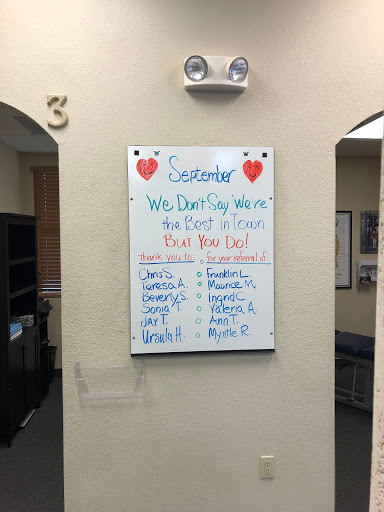 3
September
We Don't Say 'We're
the Best in Town
BUT YOU DO!
thank you to: for your referral of:
Chris S. o Franklin L.
Teresa A. o Maurice M.
Beverly S. o Ingrid C.
Sonia T. o Valeria A.
Jay T. o Ann T.
Ursula H. o Myrtle R.